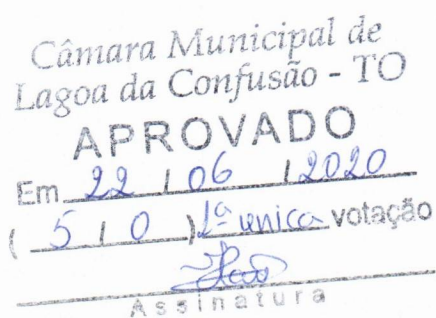 Câmara Municipal de
Lagoa da Confusão - TO
APROVADO
Em 22 / 06 / 2020
( 5 / 0 ) 1ª unica votação
Assinatura